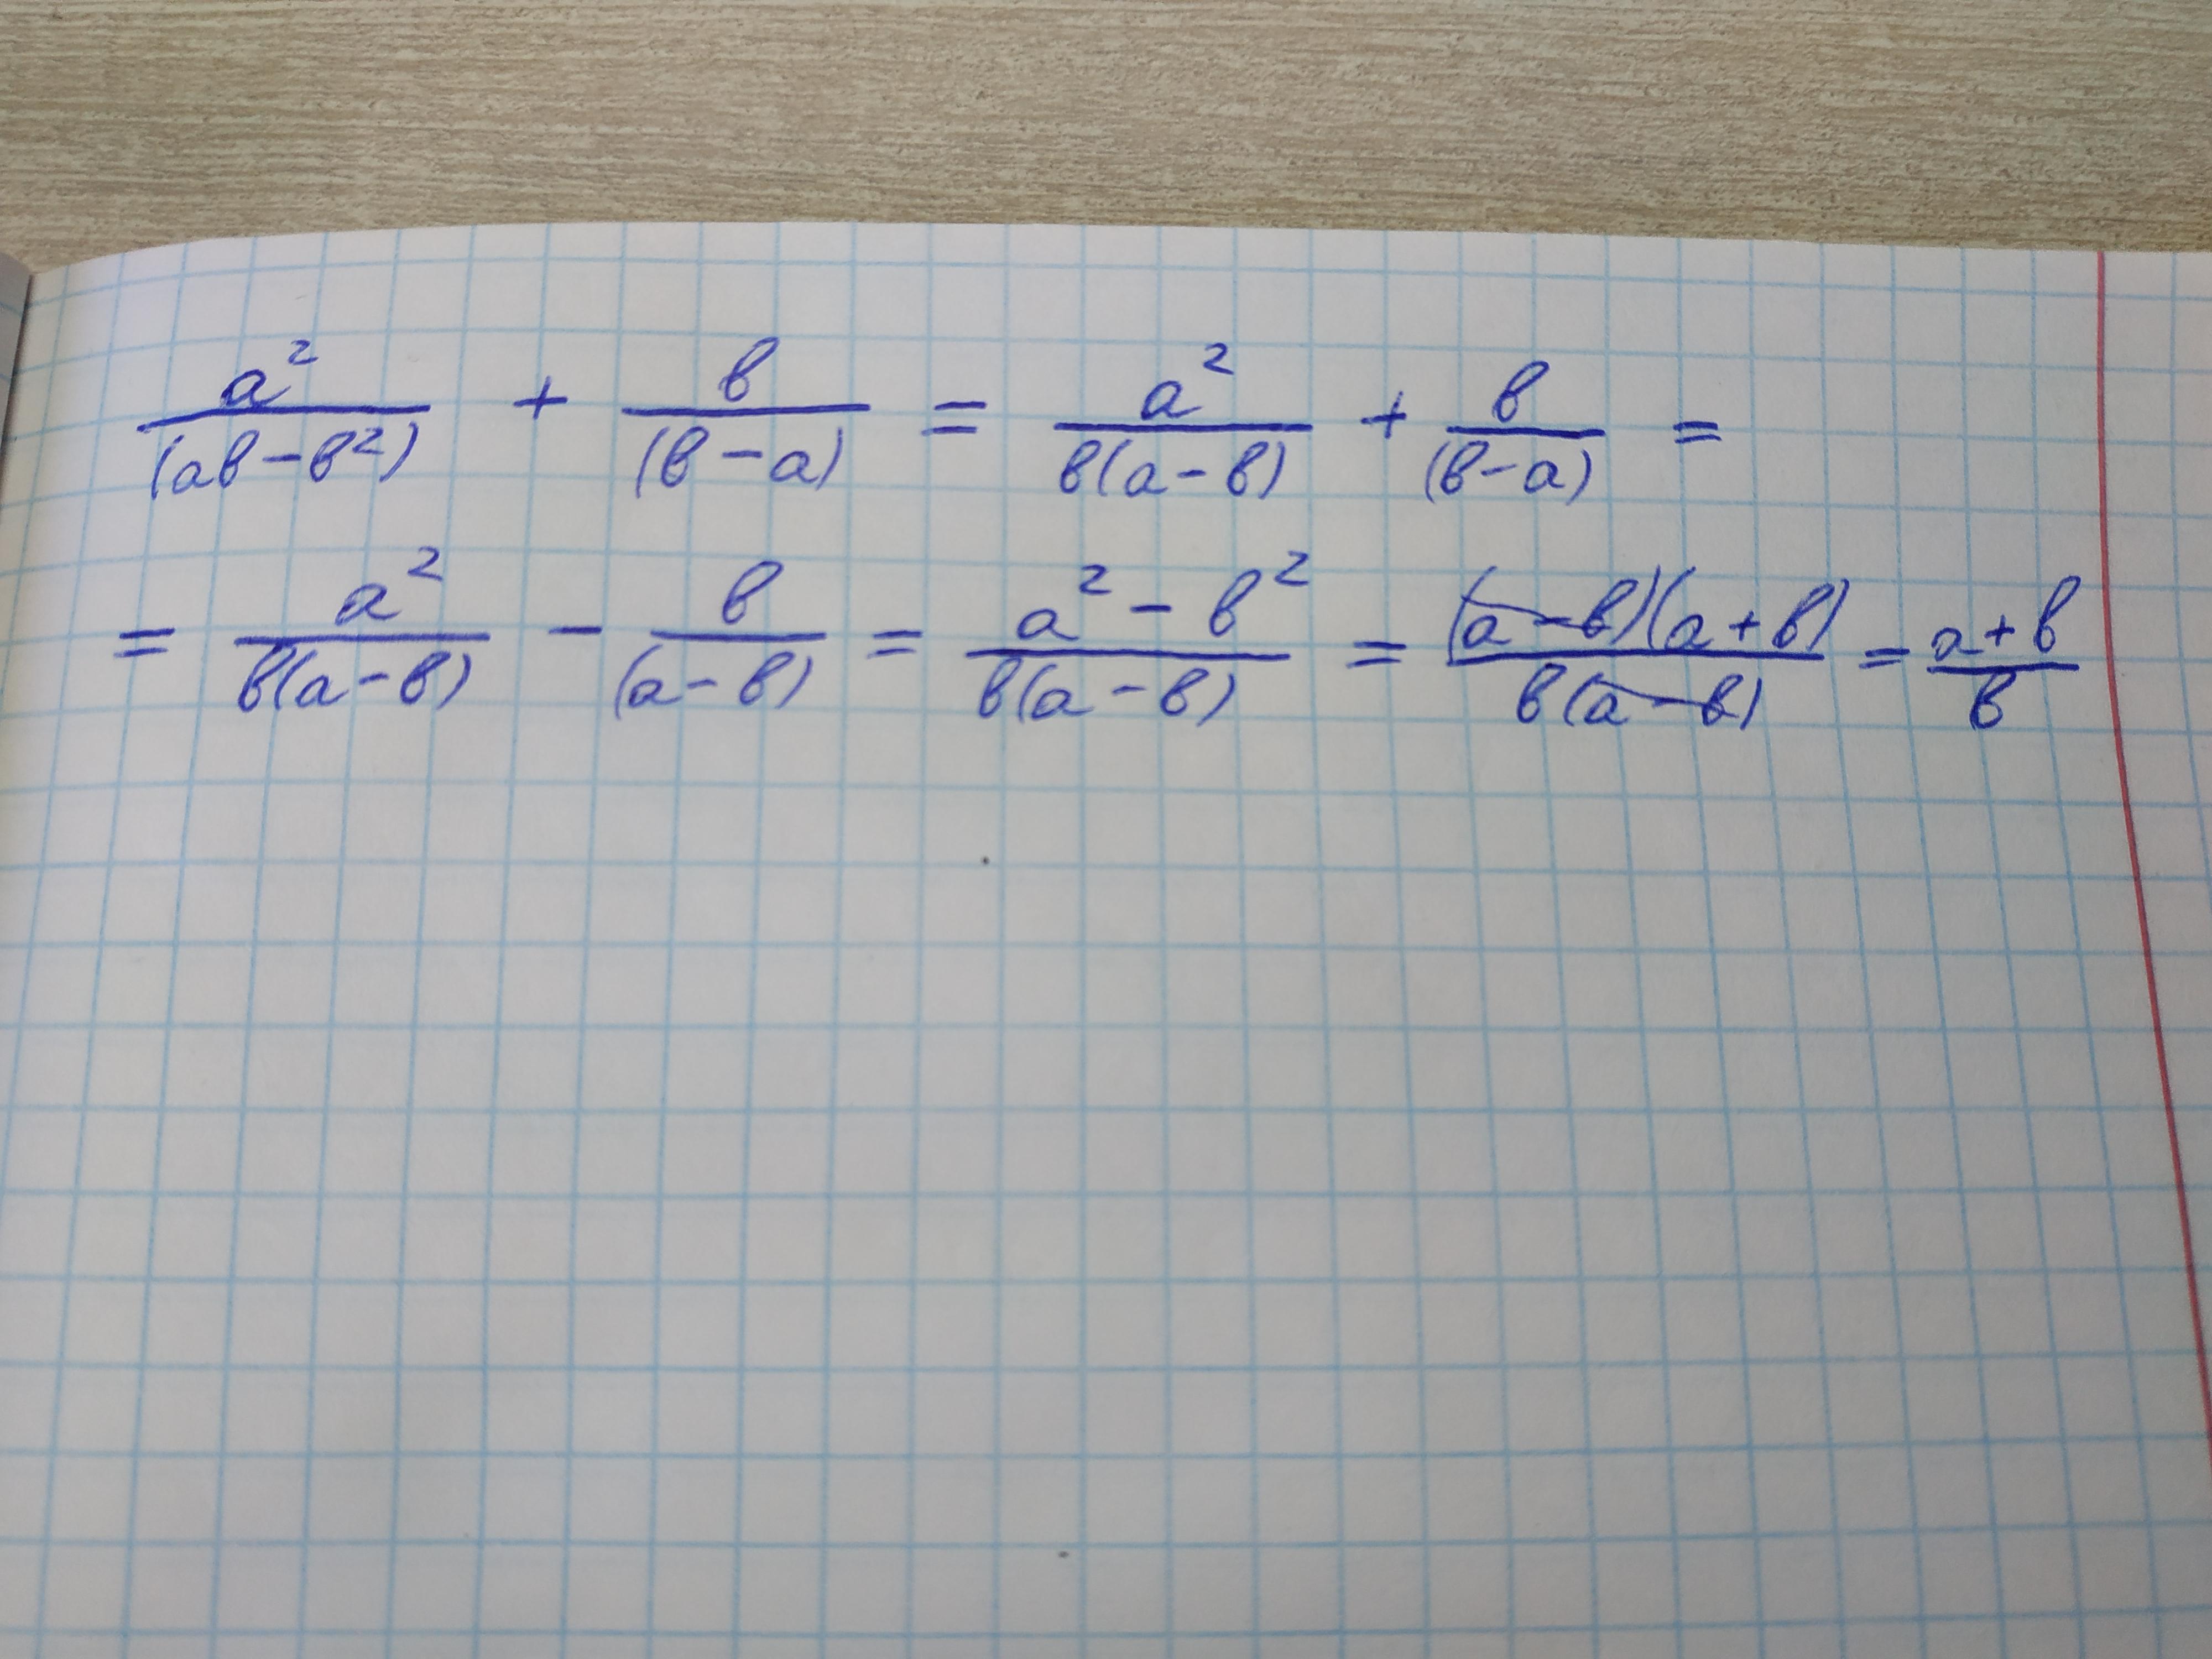 a²/(ab-b²) + b/(b-a) = a²/b(a-b) + b/(b-a) =
= a²/b(a-b) - b/(a-b) = a²-b²/b(a-b) = (a-b)(a+b)/b(a-b) = a+b/b